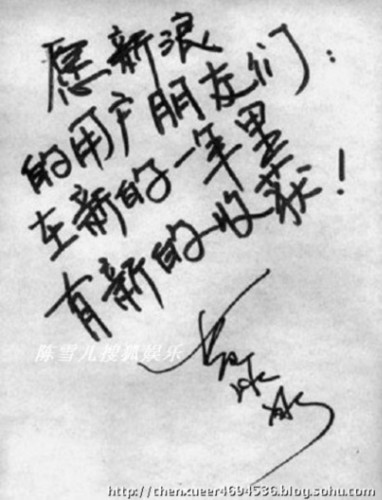 愿新浪
的用户朋友们:
在新的一年里
有新的收获!
陈雪儿搜狐娱乐
http://chenxueer4694536.blog.sohu.com